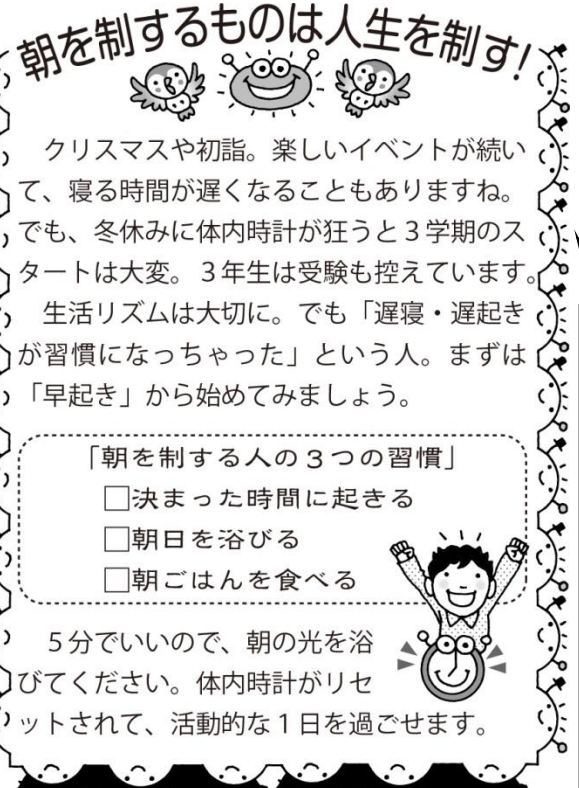 朝を制するものは人生を制す!
クリスマスや初詣。楽しいイベントが続い
て、寝る時間が遅くなることもありますね。
でも、冬休みに体内時計が狂うと3学期のス
タートは大変。3年生は受験も控えています。
生活リズムは大切に。でも「遅寝・遅起き
が習慣になっちゃった」という人。まずは
「早起き」から始めてみましょう。
「朝を制する人の3つの習慣」
□決まった時間に起きる
□朝日を浴びる
□朝ごはんを食べる
5分でいいので、朝の光を浴
びてください。体内時計がリセ
ットされて、活動的な1日を過ごせます。